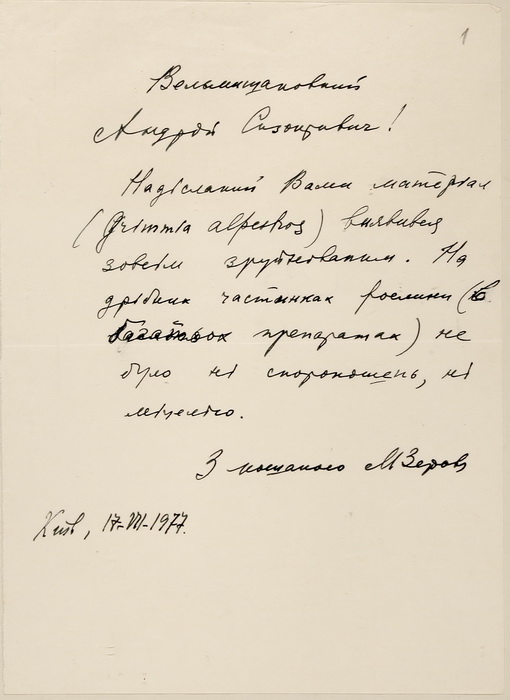 1
Вельмишановний
Андрій Созонтович!
Надісланий Вами матеріал
(Grimmia alpestris) виявився
зовсім зруйнованим. На
дрібних частинках рослини (в
багатьох препаратах) не
було ні спороношень, ні
міцелію.
З пошаною МЗеров
Київ, 17-VII-1977.